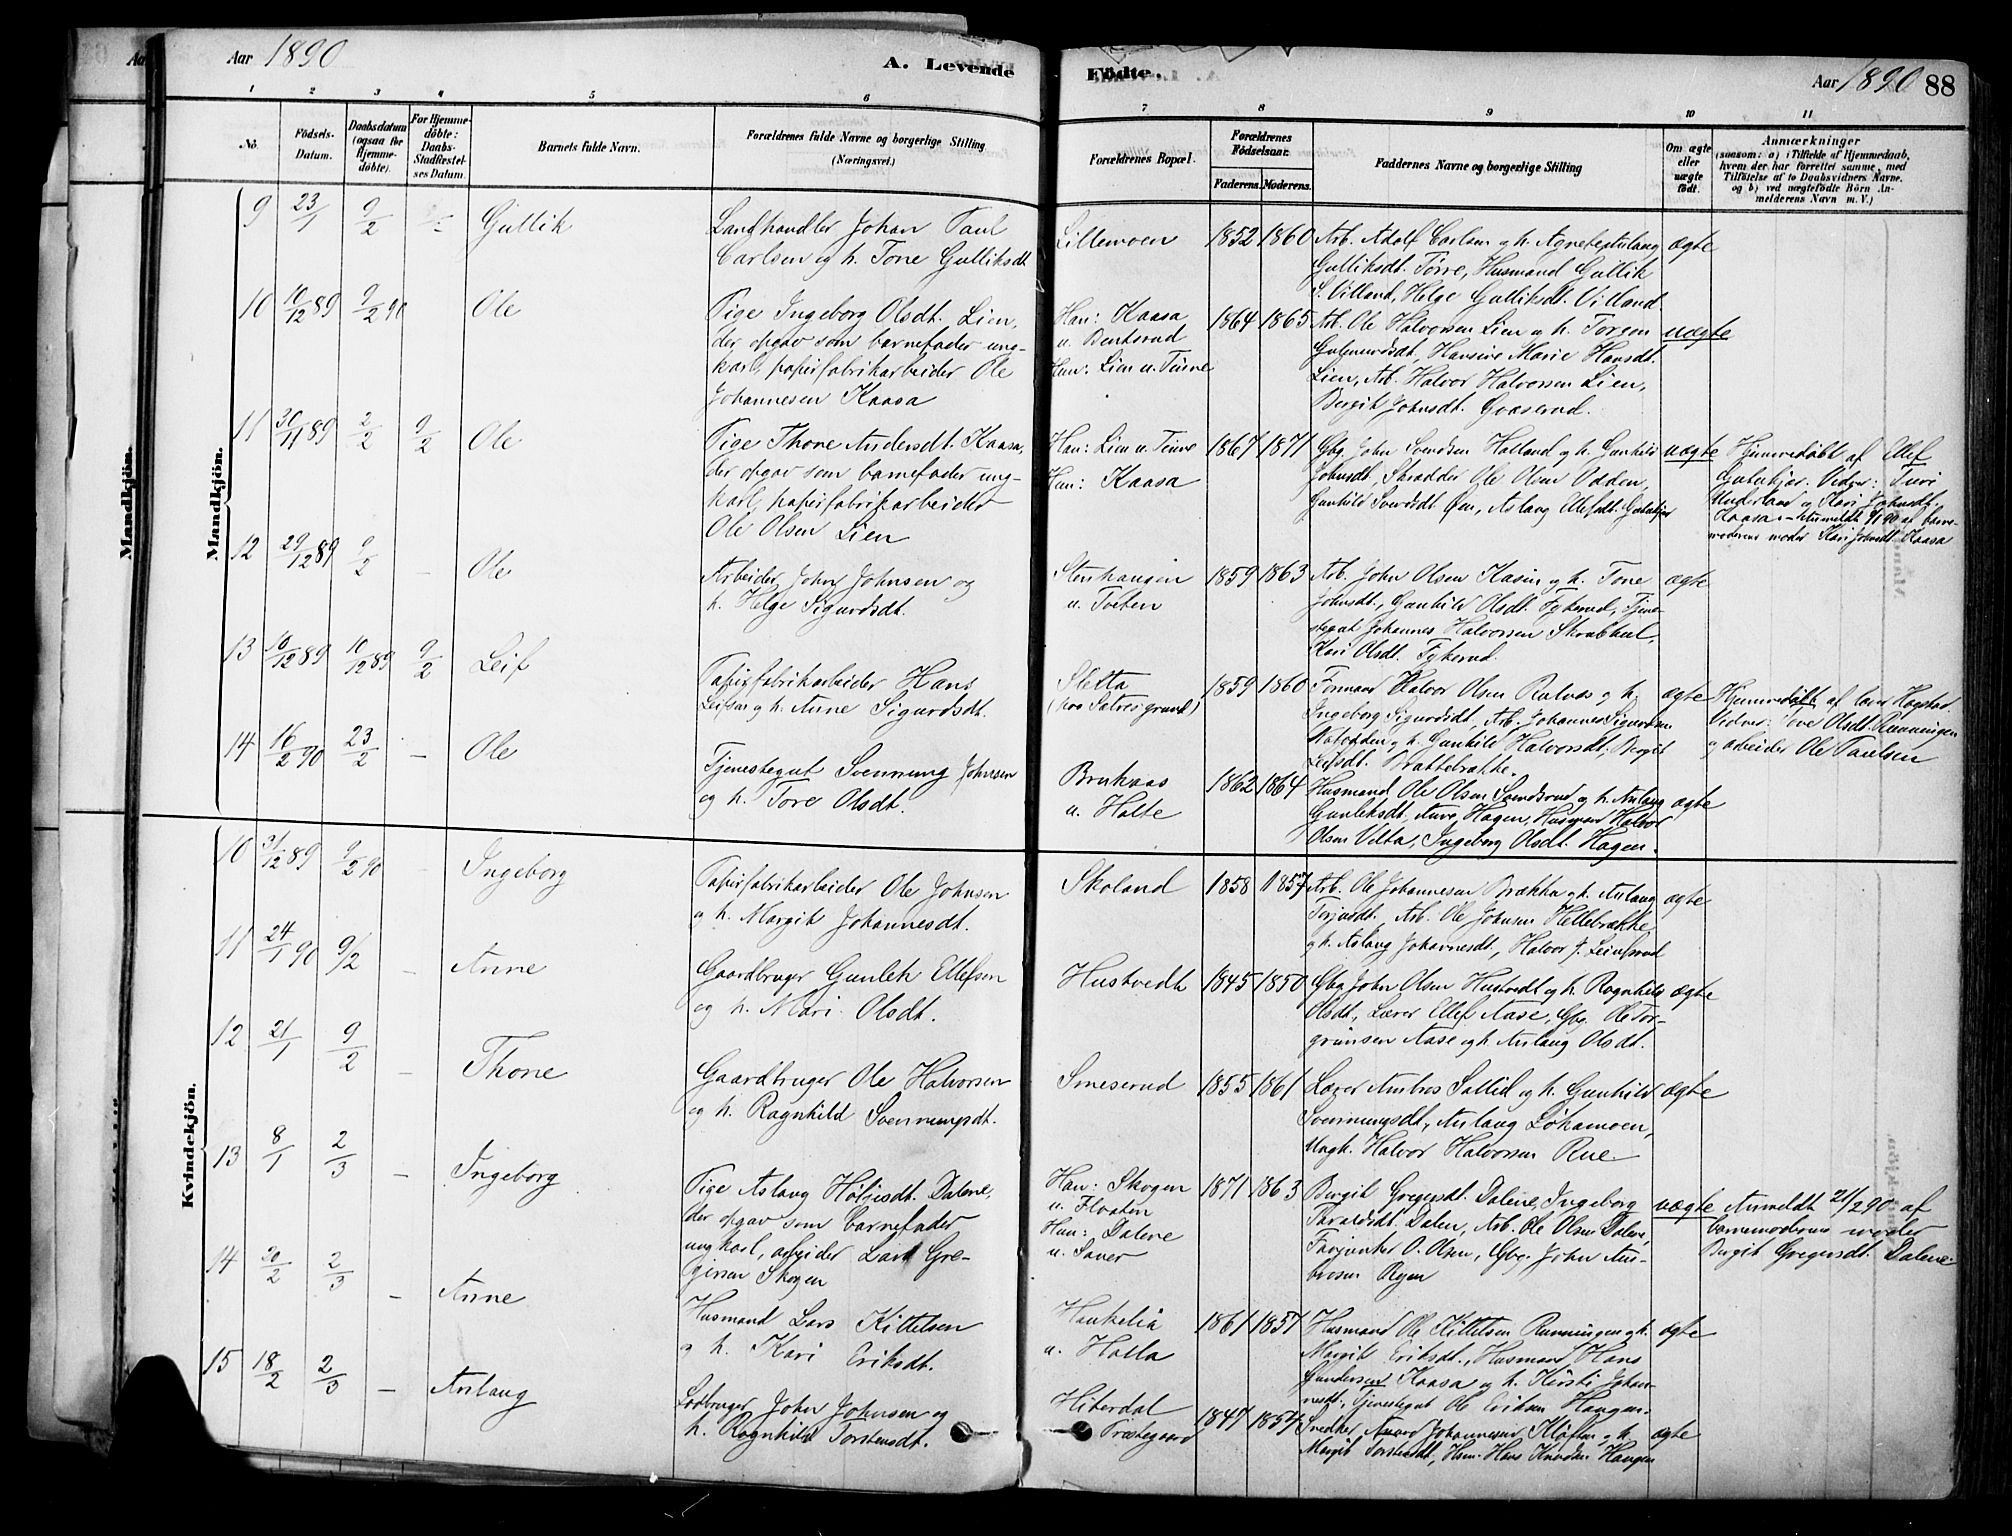 Aar 1890
A. Levende
Fødte.
Aar 1890 88
1 2 3 4 5 6 7 8 9 10 11
No.
Födsels-Datum.
Daabsdatum (ogsaa for Hjemmedöbte).
For Hjemmedöbte: Daabs-Stadfæstelses Datum.
Barnets fulde Navn.
Forældrenes fulde Navne og borgerlige Stilling (Næringsvei.)
Forældrenes Bopæl.
Forældrenes Födselsaar.
Faderens. Moderens.
Faddernes Navne og borgerlige Stilling
Om ægte eller uægte födt.
Anmærkninger
(saasom: a) i Tilfælde af Hjemmedaab, hvem der har forrettet samme, med Tilföielse af to Daabsvidners Navne. og b) ved uægtefödte Börn Anmelderens Navn m. V.)
Mandkjön.
Mandkjön.
9 23/1 9/2 Gullik
Landhandler Johan Paul
Carlsen og h. Tone Gulliksdt.
Lillemoen 1852 1860
Arb. Adolf Carlsen og h. Agnete, Aslaug
Gulliksdt. Tørre, Husmand Gullik
S. Villand, Helge Gulliksdt. Villand.
ægte
10 10/12 89 9/2 90 Ole
Pige Ingeborg Olsdt. Lien,
der opgav som barnefader ung-
karl, papirfabrikarbeider Ole
Johannesen Kaasa
Han: Kaasa
u. Bentsrud
Hun: Lien u. Tinne
1864 1865
Arb. Ole Halvorsen Lien u h. Torgon
Gulmundsdt, Hansine Marie Hansdt.
Lien, Arb. Halvor Halvorsen Lien,
Bergit Johnsdt. Graserud.
uægte
11 30/11 89 2/2 9/2 Ole
Pige Thone Andersdt. Kaasa,
der opgav som barnefader ung-
karl, papirfabrikarbeider
Ole Olsen Lien
Han: Lien u Tinne
Hun: Kaasa
1867 1871
Gbg. John Svendsen Holland og h. Gunhild
Johnsdt, Skrædder Ole Olsen Udden,
Gunhild Sverdsdt Øen, Aslaug Ellefsdt.
uægte
Hjemmedøbt af Ellef
Vidner: Turi
Underland og Kari Johnsdt.
Kaasa
moderens moder Kari Johnsdt. Kaasa
12 29/12 89 9/2 - Ole
Arbeider John Johnsen og
h. Helge Sigurdsdt.
Stenhaugen
u. Tveten
1859 1863
Arb. John Olsen Kasin og h. Tone
Johnsdt., Gunhild Olsdt. Fykerud, Tjene-
stegut Johannes Halvorsen Skrabhul,
Kari Olsdt. Fykerud.
ægte
13 10/12 89 10/12 89 9/2 Leif
Papirfabrikarbeider Hans
Leifsen og h. Anne Sigurdsdt.
Sletta
(paa Sætres grund)
1859 1860
Formand Halvor Olsen Rulvas og h.
Ingeborg Sigurdsdt. Arb. Johannes Sigurdsen
Notodden og h. Gunhild Halvorsdt. Bergit
Leifsdt. Brattebrække.
ægte
Hjemmedøbt af
Vidner: Tove Olsdt. Rønningen
og arbeider Ole Paulsen
14 16/2 90 23/2 - Ole
Tjenestegut Svennung Johnsen
og h. Tore Olsdt.
Bruhaas
u. Holte
1862 1864
Husmand Ole Olsen Svindsrud og h. Aslaug
Gunleksdt, Anne Hagen, Husmand Halvor
Olsen Velta, Ingeborg Olsdt. Hagen.
ægte
Kvindekjön.
10 31/12 89 9/2 90 - Ingeborg
Papirfabrikarbeider Ole Johnsen
og h. Margit Johannesdt.
Skoland 1858 1857
Arb. Ole Johannesen Brække og h. Aslaug
Torjusdt. Arb. Ole Johnsen Hellebrække
og h. Aslaug Johannesdt., Halvor J. Leinsrud
ægte
11 24/1 90 9/2 - Anne
Gaardbruger Gunlek Ellefsen
og h. Mari Olsdt.
Hustvedt 1845 1850
Gbg. John Olsen Hustvedt og h. Ragnhild
Olsdt, Lærer Ellef Aase, Gbg. Ole Tor-
grimsen Aase og h. Aslaug Olsdt.
ægte
12 21/1 9/2 - Thone
Gaardbruger Ole Halvorsen
og h. Ragnhild Svennungsdt.
Smeserud 1855 1861
Lærer Ambros Sollid og h. Gunhild
Svennungsdt, Aslaug Løhamoen,
Ungk. Halvor Halvorsen Rue.
ægte
13 8/1 2/3 - Ingeborg
Pige Aslaug Hølgesdt. Dalene,
der opgav som barnefader
ungkarl, arbeider Lars Gre-
gersen Skogen
Han: Skogen
u. Floaten
Hun: Dalene
u. Sauer
1871 1863
Bergit Gregersdt. Dalene, Ingeborg
Haraldsdt. Dalen, Arb. Ole Olsen Dalene,
O. Olsen, Gbg. John Am-
brosen Ryen
uægte
Anmeldt 21/2 90 af
barnemoderens moder
Bergit Gregersdt. Dalene.
14 20/2 2/3 - Anne
Husmand Lars Kittelsen
og h. Kari Eriksdt.
Haukelia
u. Holla
1861 1857
Husmand Ole Kittelsen Rønningen og h.
Margit Eriksdt., Husmand Hans
Gundersen Kaasa og h. Kirsti Johan-
nesdt. Tjenestegut Ole Eriksen Haugen.
ægte
15 18/2 2/3 - Aslaug
Lodbruger John Johnsen og
h. Ragnhild Torstensdt.
Hiterdal
Præstegaard
1847 1854
Snedker Johannesen Kløften og h.
Margit Torstensdt, Hsm. Hans Knudsen Haugen
ægte